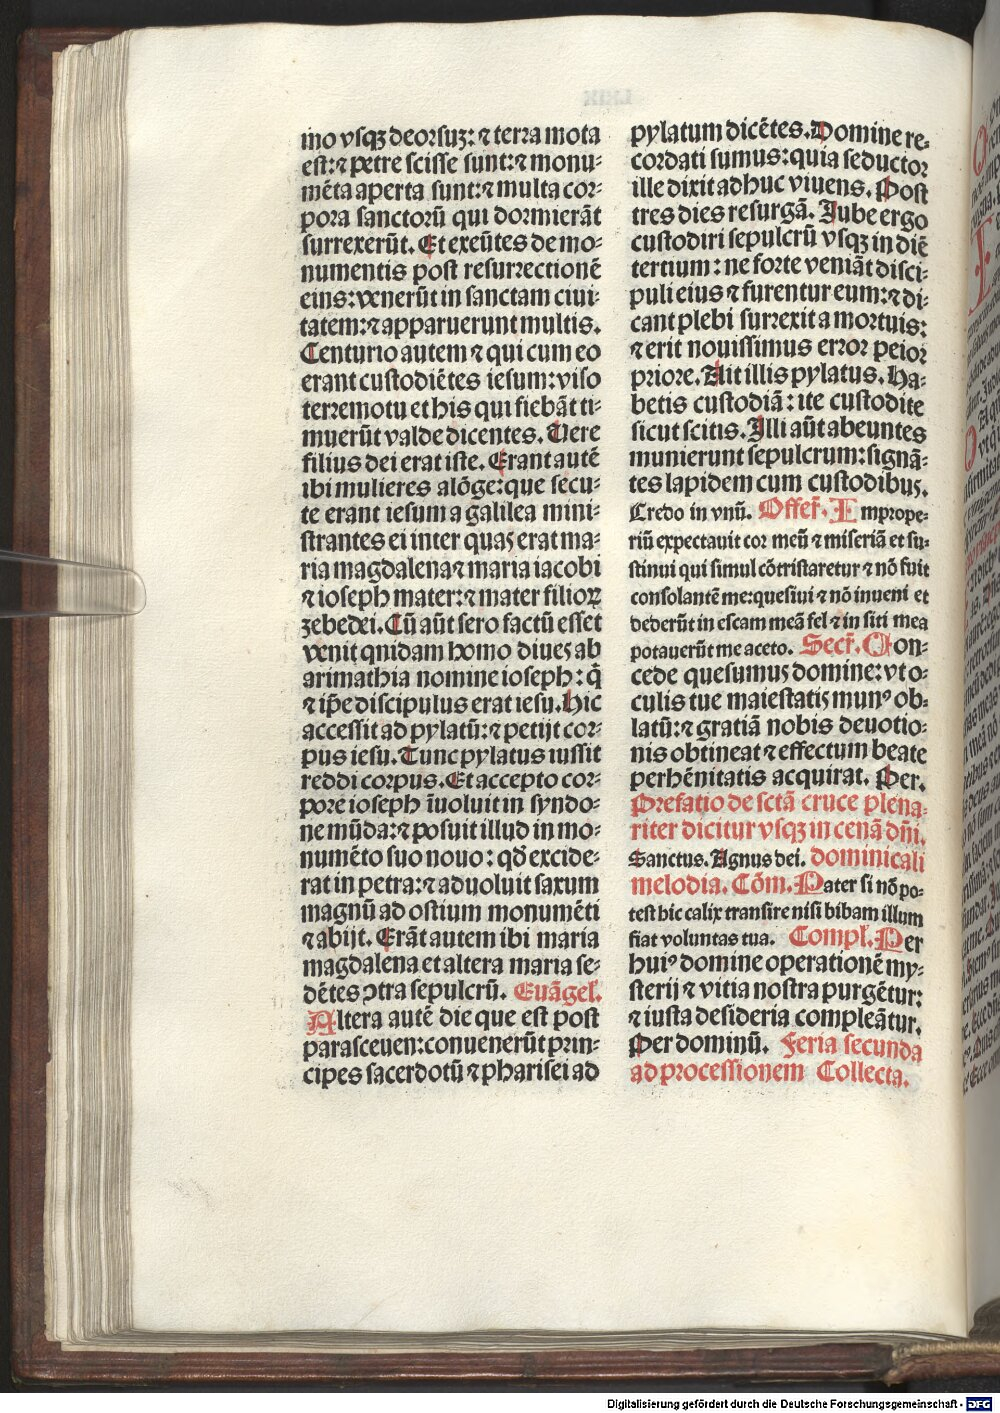 mo vsqꝫ deorsuꝫ: ⁊ terra mota
est: ⁊ petre scisse sunt: ⁊ monu-
mēta aperta sunt: ⁊ multa cor-
pora sanctorū qui dormierāt
surrexerūt. Et exeūtes de mo-
numentis post resurrectionē
eins: venerūt in sanctam ciui-
tatem: ⁊ apparuerunt multis.
Centurio autem ⁊ qui cum eo
erant custodiētes iesum: viso
terremotu et his qui fiebāt ti-
muerūt valde dicentes. Vere
filius dei erat iste. Erant autē
ibi mulieres alōge: que secu-
te erant iesum a galilea mini-
strantes ei inter quas erat ma-
ria magdalena ⁊ maria iacobi
⁊ ioseph mater: ⁊ mater filioꝝ
zebedei. Cū aūt sero factū esset
venit qnidam homo diues ab
arimathia nomine ioseph: q̄
⁊ ip̄e discipulus erat iesu. Hic
accessit ad pylatū: ⁊ petijt cor-
pus iesu. Tunc pylatus iussit
reddi corpus. Et accepto cor-
pore ioseph īuoluit in syndo-
ne mūda: ⁊ posuit illud in mo-
numēto suo nouo: qd̄ excide-
rat in petra: ⁊ aduoluit saxum
magnū ad ostium monumēti
⁊ abijt. Erāt autem ibi maria
magdalena et altera maria se-
dētes ꝯtra sepulcrū. Euāgel.
Altera autē die que est post
parasceuen: conuenerūt prin-
cipes sacerdotū ⁊ pharisei ad
pylatum dicētes. Domine re-
cordati sumus: quia seductor
ille dixit adhuc viuens. Post
tres dies resurgā. Jube ergo
custodiri sepulcrū vsqꝫ in diē
tertium: ne forte veniāt disci-
puli eius ⁊ furentur eum: ⁊ di-
cant plebi surrexit a mortuis:
⁊ erit nouissimus error peior
priore. Ait illis pylatus. Ha-
betis custodiā: ite custodite
sicut scitis. Illi aūt abeuntes
munierunt sepulcrum: signā-
tes lapidem cum custodibus.
Credo in vnū. Offer̄. Imprope-
riū expectauit cor meū ⁊ miseriā et su-
stinui qui simul cōtristaretur ⁊ nō fuit
consolantē me: quesiui ⁊ nō inueni et
dederūt in escam meā fel ⁊ in siti mea
potauerūt me aceto. Secr̄. Con-
cede quesumus domine: vt o-
culis tue maiestatis munꝰ ob-
latū: ⁊ gratiā nobis deuotio-
nis obtineat ⁊ effectum beate
perhēnitatis acquirat. Per.
Prefatio de sctā cruce plena-
riter dicitur vsqꝫ in cenā dn̄i.
Sanctus. Agnus dei. dominicali
melodia. Cōm. Pater si nō po-
test hic calix transire nisi bibam illum
fiat voluntas tua. Compl. Per
huiꝰ domine operationē my-
sterij ⁊ vitia nostra purgētur:
⁊ iusta desideria compleātur.
Per dominū. Feria secunda
ad processionem Collecta.
Digitalisierung gefördert durch die Deutsche Forschungsgemeinschaft - DFG